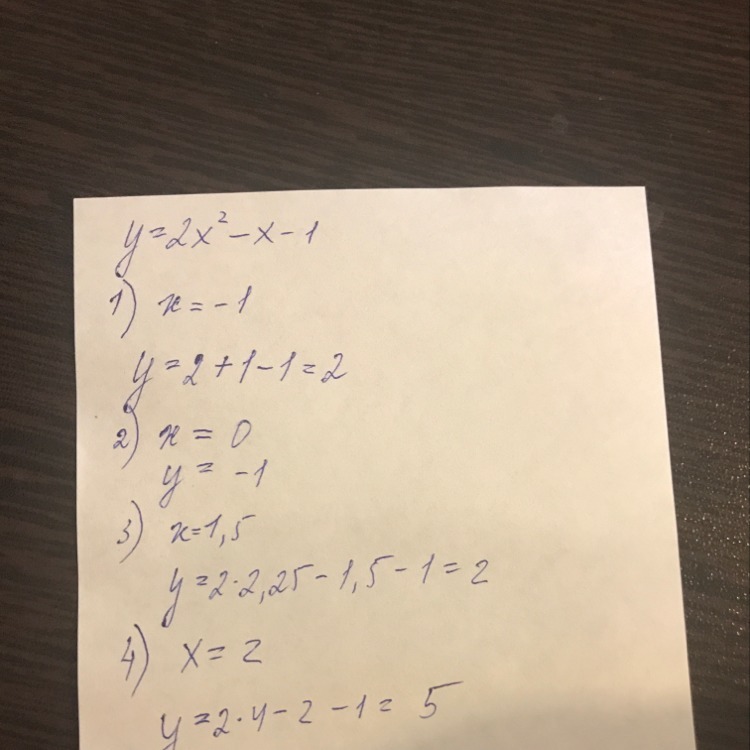 y=2x²-x-1
1) x=-1
y=2+1-1=2
2) x=0
y=-1
3) x=1,5
y=2·2,25-1,5-1=2
4) x=2
y=2·4-2-1=5